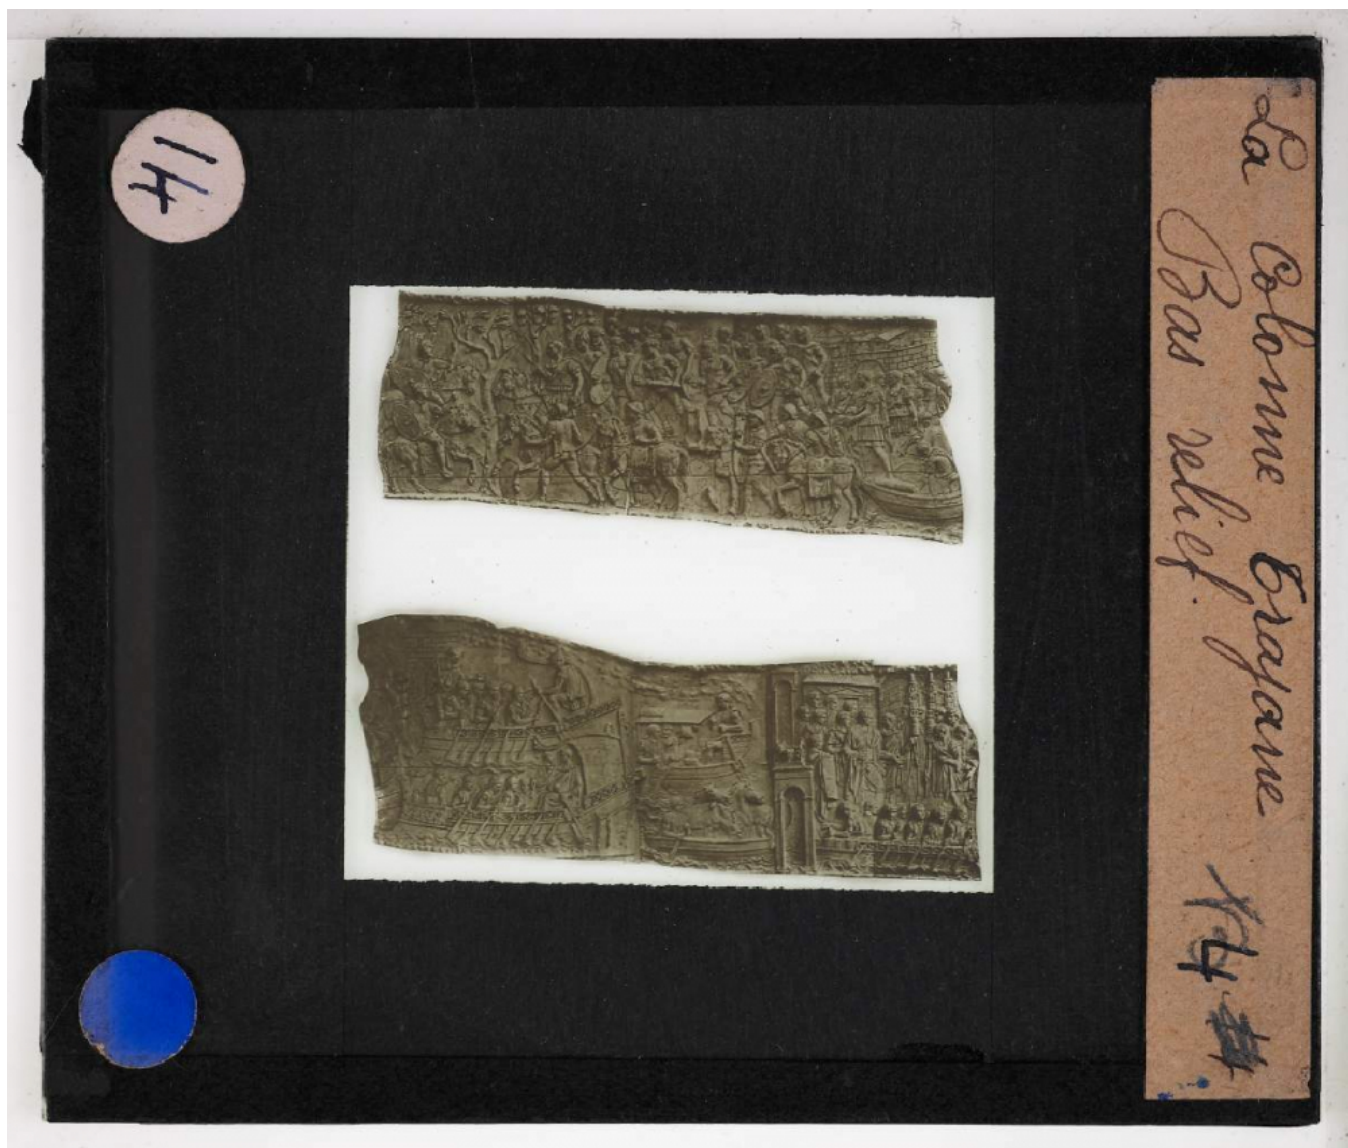 14
La Colonne Trajane
Bas relief.